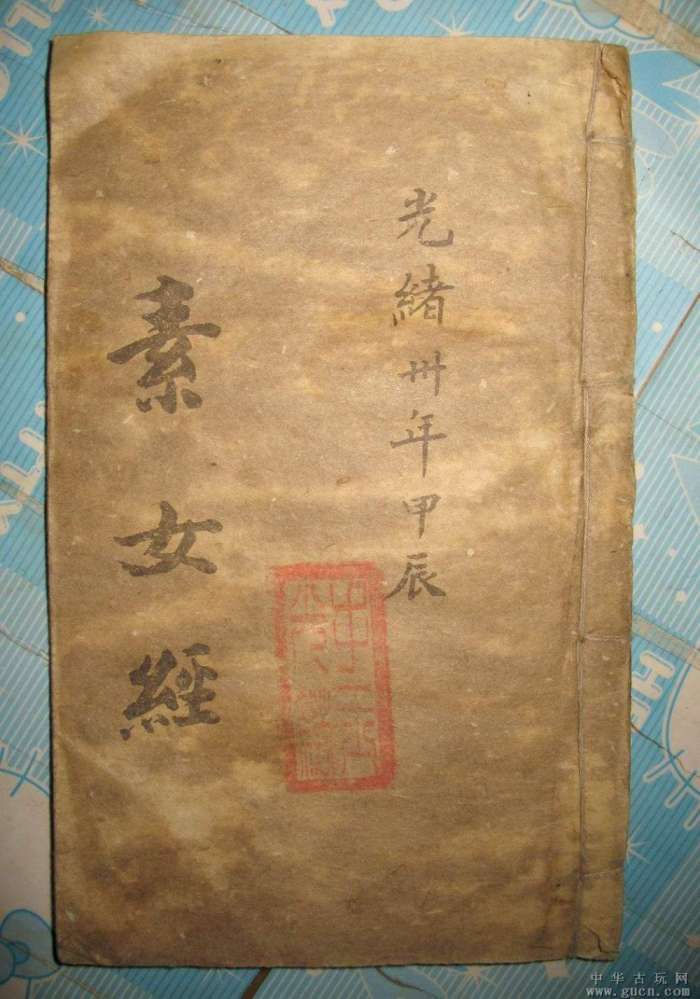 光緒卅年甲辰
素女經
中华古玩网
www.gucn.com